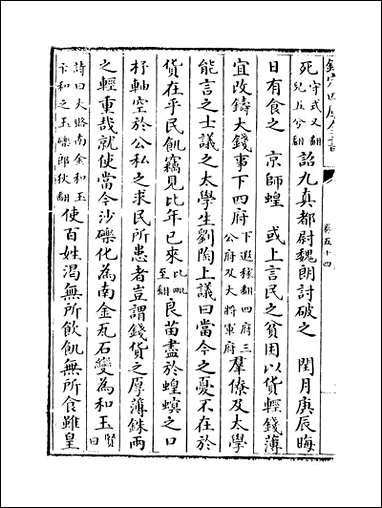 欽定四庫全書
卷五十四
死守式又翻兒五兮翻詔九真都尉魏朗討破之 閏月庚辰晦
日有食之 京師蝗 或上言民之貧困以貨輕錢薄
宜改鑄大錢事下四府下遐稼翻四府三公府及大將軍府羣僚及太學
能言之士議之太學生劉陶上議曰當今之憂不在於
貨在乎民飢竊見比年已來比毗至翻良苗盡於蝗螟之口
杼軸空於公私之求民所患者豈謂錢貨之厚薄銖兩
之輕重哉就使當今沙礫化為南金瓦石變為和玉賢曰
詩曰大賂南金和玉卞和之玉礫郎狄翻使百姓渴無所飲飢無所食雖皇